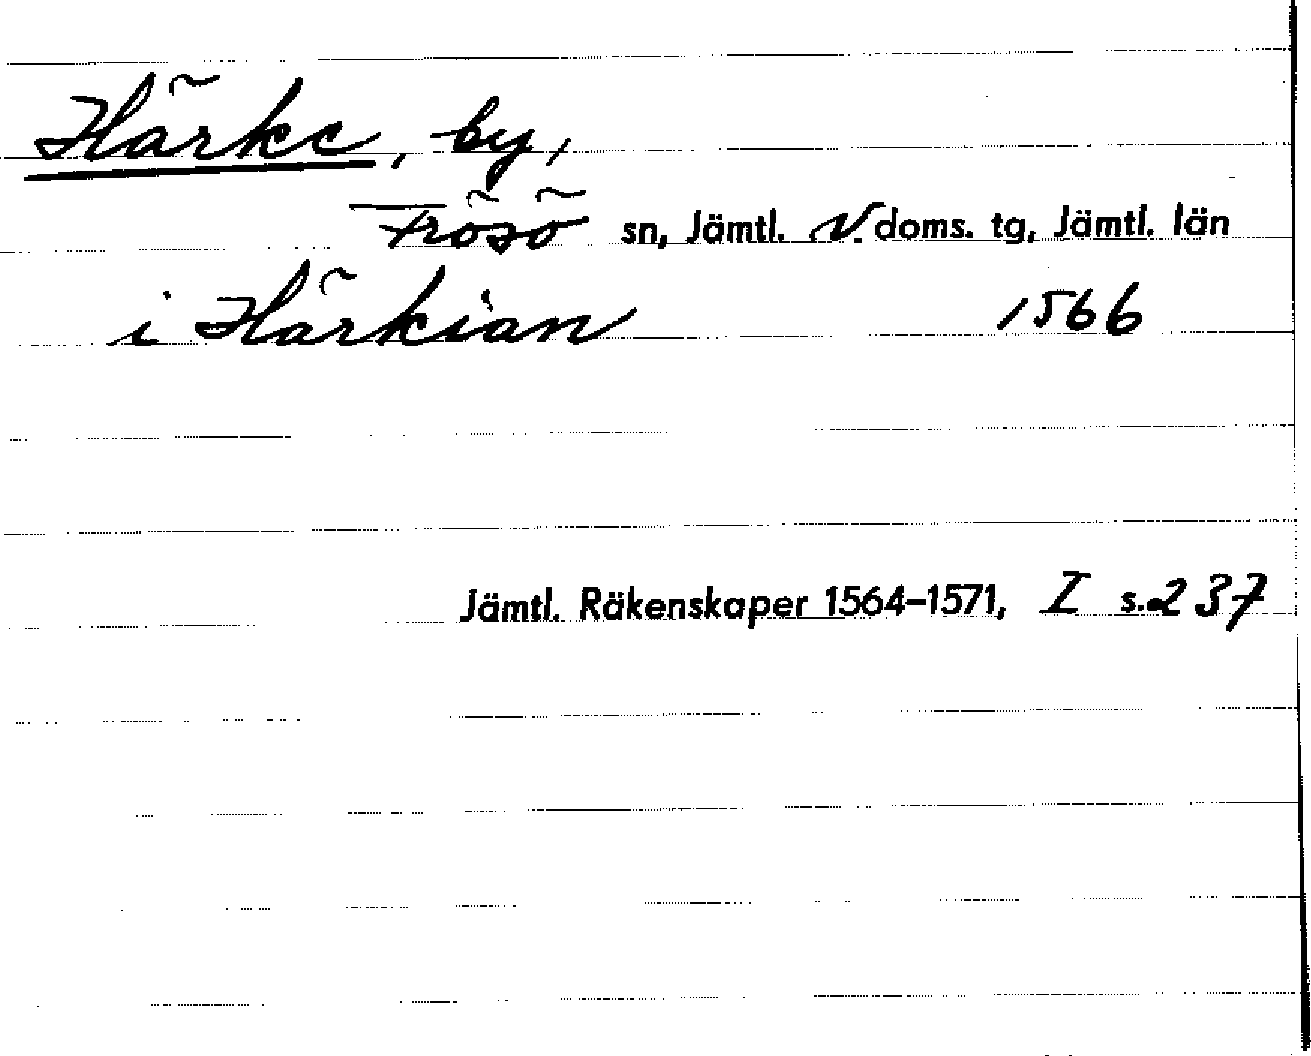 Härke, by,
Frösö sn, Jämtl. N. doms. tg, Jämtl. län
i Härkian 1566
Jämtl. Räkenskaper 1564-1571, I s. 237